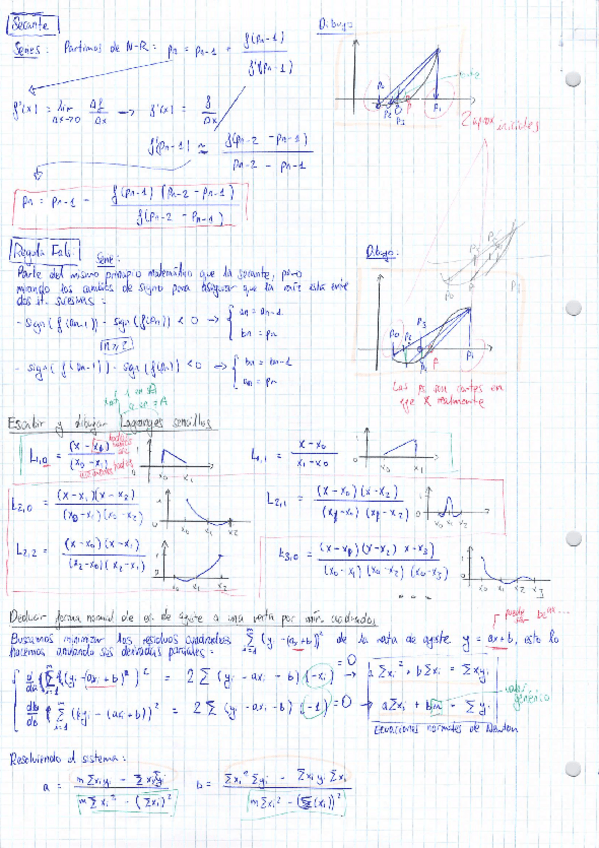 Secante
Dibujo
Series: Partimos de N-R: pn = pn-1 - f(pn-1) / f'(pn-1)
f'(x) = lim Δx→0 Δf/Δx → f'(x) = f/Δx
f'(pn-1) ≈ f(pn-2 - pn-1) / pn-2 - pn-1
2 aprox iniciales
pn = pn-1 - f(pn-1)(pn-2 - pn-1) / f(pn-2 - pn-1)
Regula Falsi
Dibujo:
Parte del mismo principio matemático que la secante, pero
mirando los cambios de signo para asegurar que la raíz está entre
dos it. sucesivas:
- sign(f(an-1)) - sign(f(pn)) < 0 → { an = an-1
bn = pn
- sign(f(bn-1)) - sign(f(pn)) < 0 → { bn = bn-1
an = pn
Los pn son cortes en
eje X realmente
Escribir y dibujar Lagranges sencillos
L1,0 = (x - x1) / (x0 - x1)
L1,1 = x - x0 / x1 - x0
L2,0 = (x - x1)(x - x2) / (x0 - x1)(x0 - x2)
L2,1 = (x - x0)(x - x2) / (x1 - x0)(x1 - x2)
L2,2 = (x - x0)(x - x1) / (x2 - x0)(x2 - x1)
L3,0 = (x - x1)(x - x2)(x - x3) / (x0 - x1)(x0 - x2)(x0 - x3)
Deducir forma normal de ec. de ajuste a una recta por mín. cuadrados
Buscamos minimizar los residuos cuadrados Σ (y - (ax + b))² de la recta de ajuste y = ax + b, esto lo
hacemos anulando sus derivadas parciales:
d/da (Σ (yi - (axi + b))²) = 2 Σ (yi - axi - b)(-xi) = 0 → a Σxi² + b Σxi = Σxiyi
db/db (Σ (yi - (axi + b))²) = 2 Σ (yi - axi - b)(-1) = 0 → a Σxi + bm = Σyi
valor genérico
Ecuaciones normales de Newton
Resolviendo el sistema:
a = mΣxiyi - ΣxiΣyi / mΣxi² - (Σxi)²
b = Σxi²Σyi - ΣxiyiΣxi / mΣxi² - (Σ(xi))²